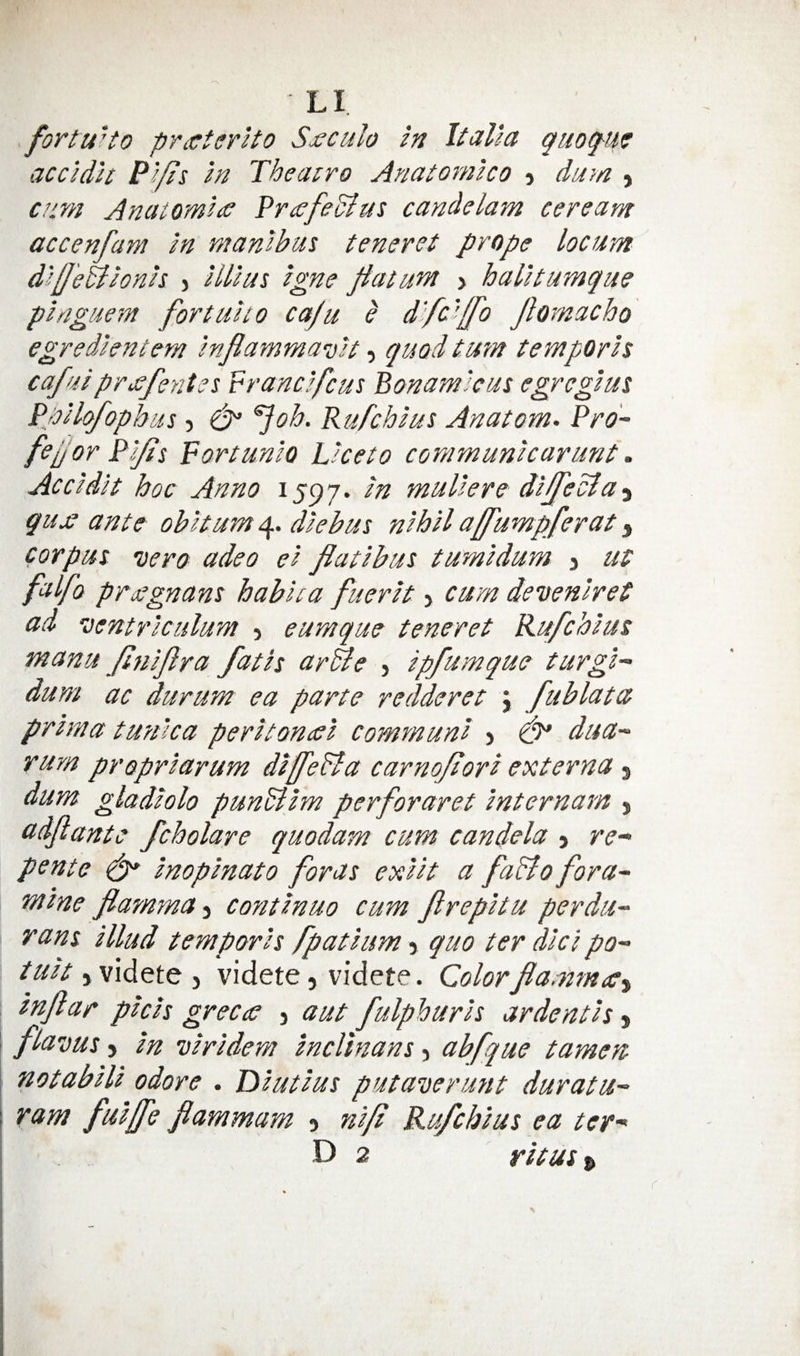 LI
fortuito præterito Sæculo in Italia quoque
accidit Pisis in Theatro Anatomico , dum ,
cum Anatomiæ Præfectus candelam ceream
accensam in manibus teneret prope locum
dissectionis , illius igne flatum , halitumque
pinguem fortuito casu è discisso stomacho
egredientem inflammavit , quod tum temporis
casui præsentes Franciscus Bonamicus egregius
Philosophus , & Joh. Ruschius Anatom. Pro-
fessor Pisis Fortunio Liceto communicarunt .
Accidit hoc Anno 1597. in muliere dissecta ,
quæ ante obitum 4. diebus nihil assumpserat ,
corpus vero adeo ei flatibus tumidum , ut
falso prægnans habita fuerit , cum deveniret
ad ventriculum , eumque teneret Ruschius
manu sinistra satis arcte , ipsumque turgi-
dum ac durum ea parte redderet ; sublata
prima tunica peritonæi communi , & dua-
rum propriarum dissecta carnosiori externa ,
dum gladiolo punctim perforaret internam ,
adstante scholare quodam cum candela , re-
pente & inopinato foras exiit a facto fora-
mine flamma , continuo cum strepitu perdu-
rans illud temporis spatium , quo ter dici po-
tuit , videte , videte , videte . Color flammæ ,
instar picis grecæ , aut sulphuris ardentis ,
flavus , in viridem inclinans , absque tamen
notabili odore . Diutius putaverunt duratu-
ram fuisse flammam , nisi Ruschius ea ter-
D 2 ritus ,